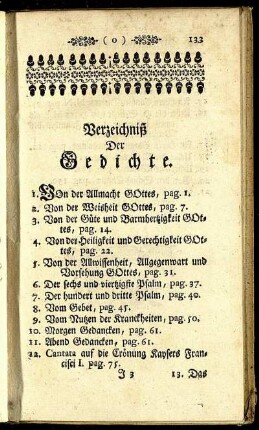 ( 0 ) 133
Verzeichniß
Der
Gedichte.
1. Von der Allmacht GOttes, pag. 1.
2. Von der Weisheit GOttes, pag. 7.
3. Von der Güte und Barmhertzigkeit GOt-
tes, pag. 14.
4. Von der Heiligkeit und Gerechtigkeit GOt-
tes, pag. 22.
5. Von der Allwissenheit, Allgegenwart und
Vorsehung GOttes, pag. 31.
6. Der sechs und viertzigste Psalm, pag. 37.
7. Der hundert und dritte Psalm, pag. 40.
8. Vom Gebet, pag. 45.
9. Vom Nutzen der Kranckheiten, pag. 50.
10. Morgen Gedancken, pag. 61.
11. Abend Gedancken, pag. 61.
12. Cantata auf die Crönung Kaysers Fran-
cisci I. pag. 75.
J 3 13. Das